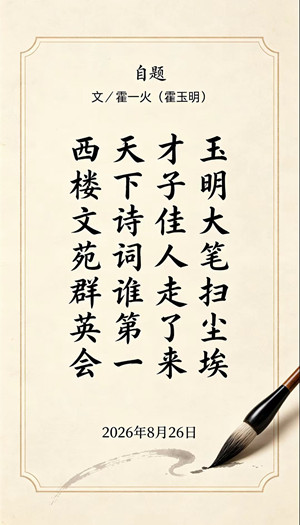 自题
文/霍一火（霍玉明）
玉明大笔扫尘埃
才子佳人走了来
天下诗词谁第一
西楼文苑群英会
2026年8月26日